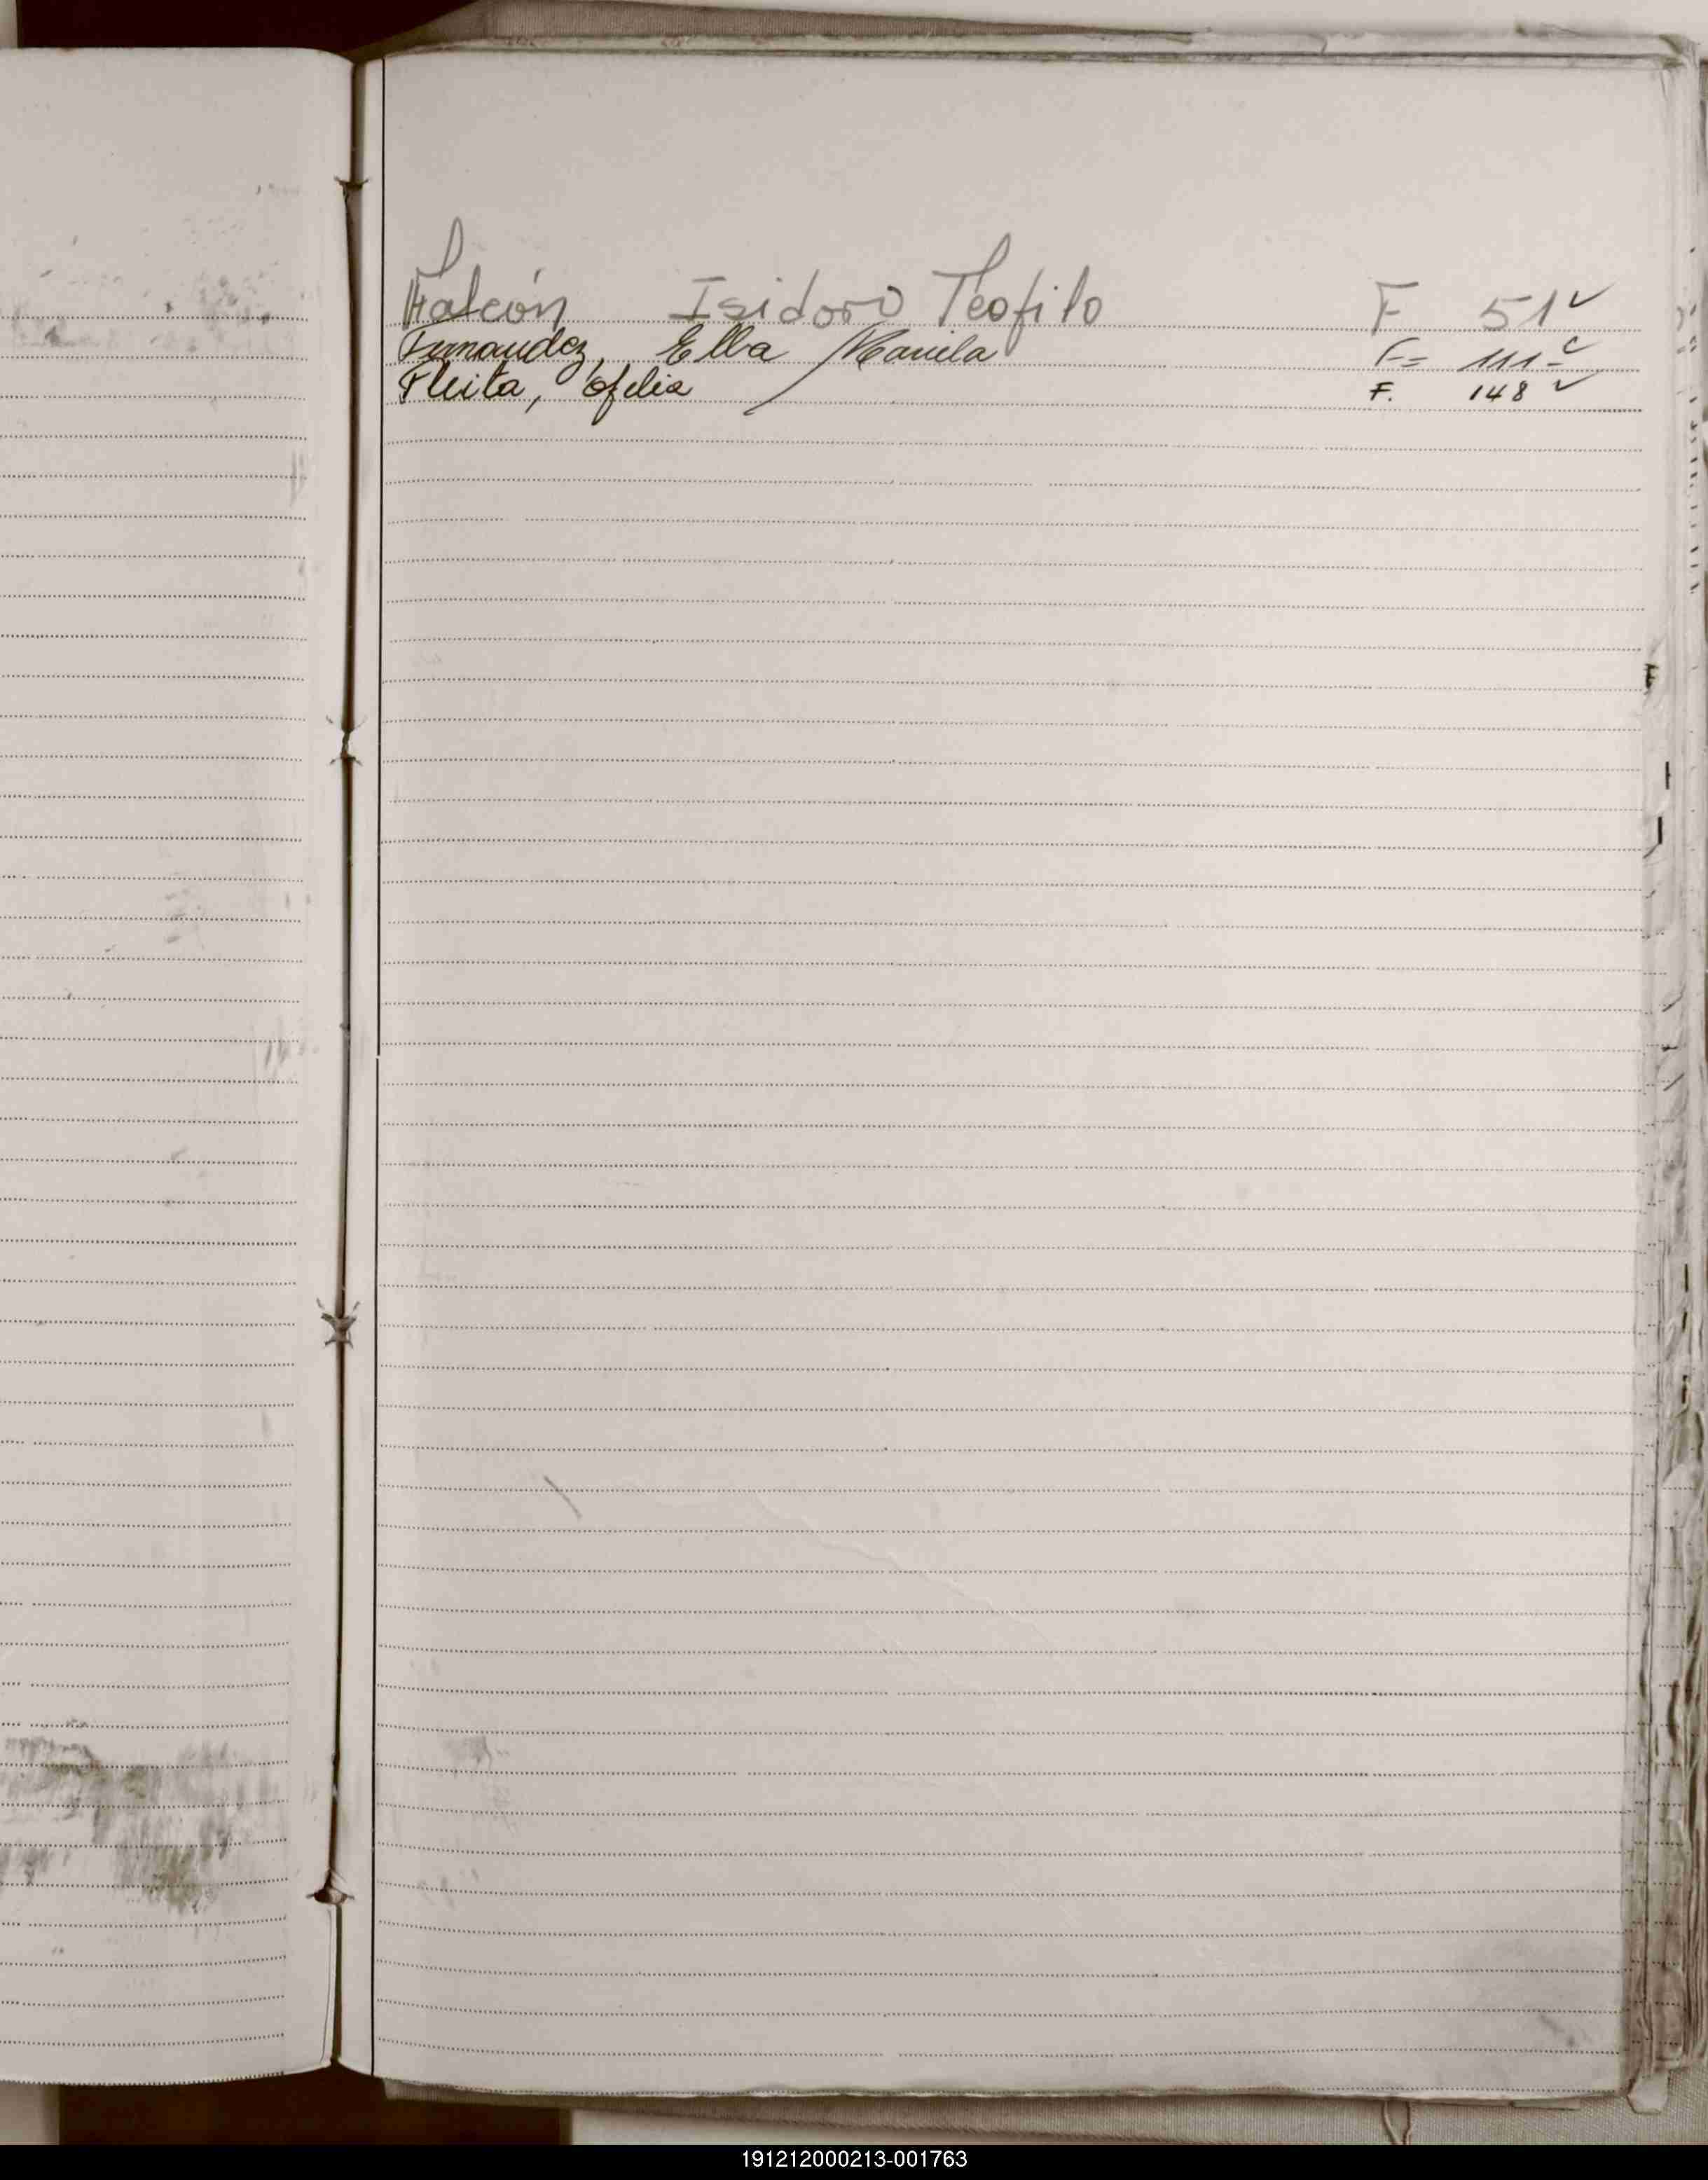 Falcón Isidoro Teofilo F 51 ✓
Fernandez, Elba Mariela F= 111=
Fleita, Ofelia F. 148 ✓
F
191212000213-001763